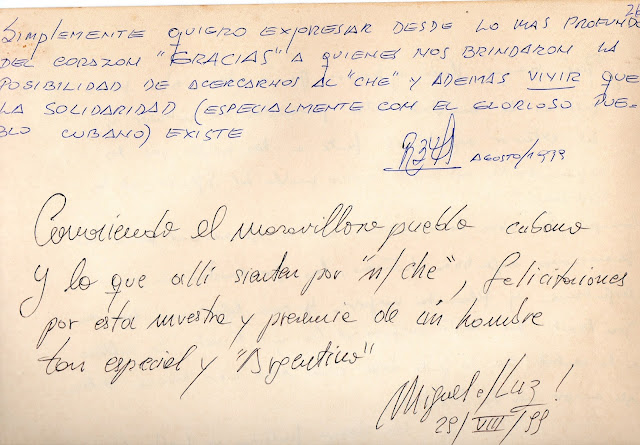 26
SIMPLEMENTE QUIERO EXPRESAR DESDE LO MAS PROFUNDO
DEL CORAZON "GRACIAS" A QUIENES NOS BRINDARON LA
POSIBILIDAD DE ACERCARNOS AL "CHE" Y ADEMAS VIVIR QUE
LA SOLIDARIDAD (ESPECIALMENTE CON EL GLORIOSO PUE-
BLO CUBANO) EXISTE
AGOSTO/1999
Conociendo el maravilloso pueblo cubano
y lo que alli sienten por "n/che", felicitaciones
por esta muestra y presencia de un hombre
tan especial y "Argentino"
Miguel e/Luz!
29/VIII/99